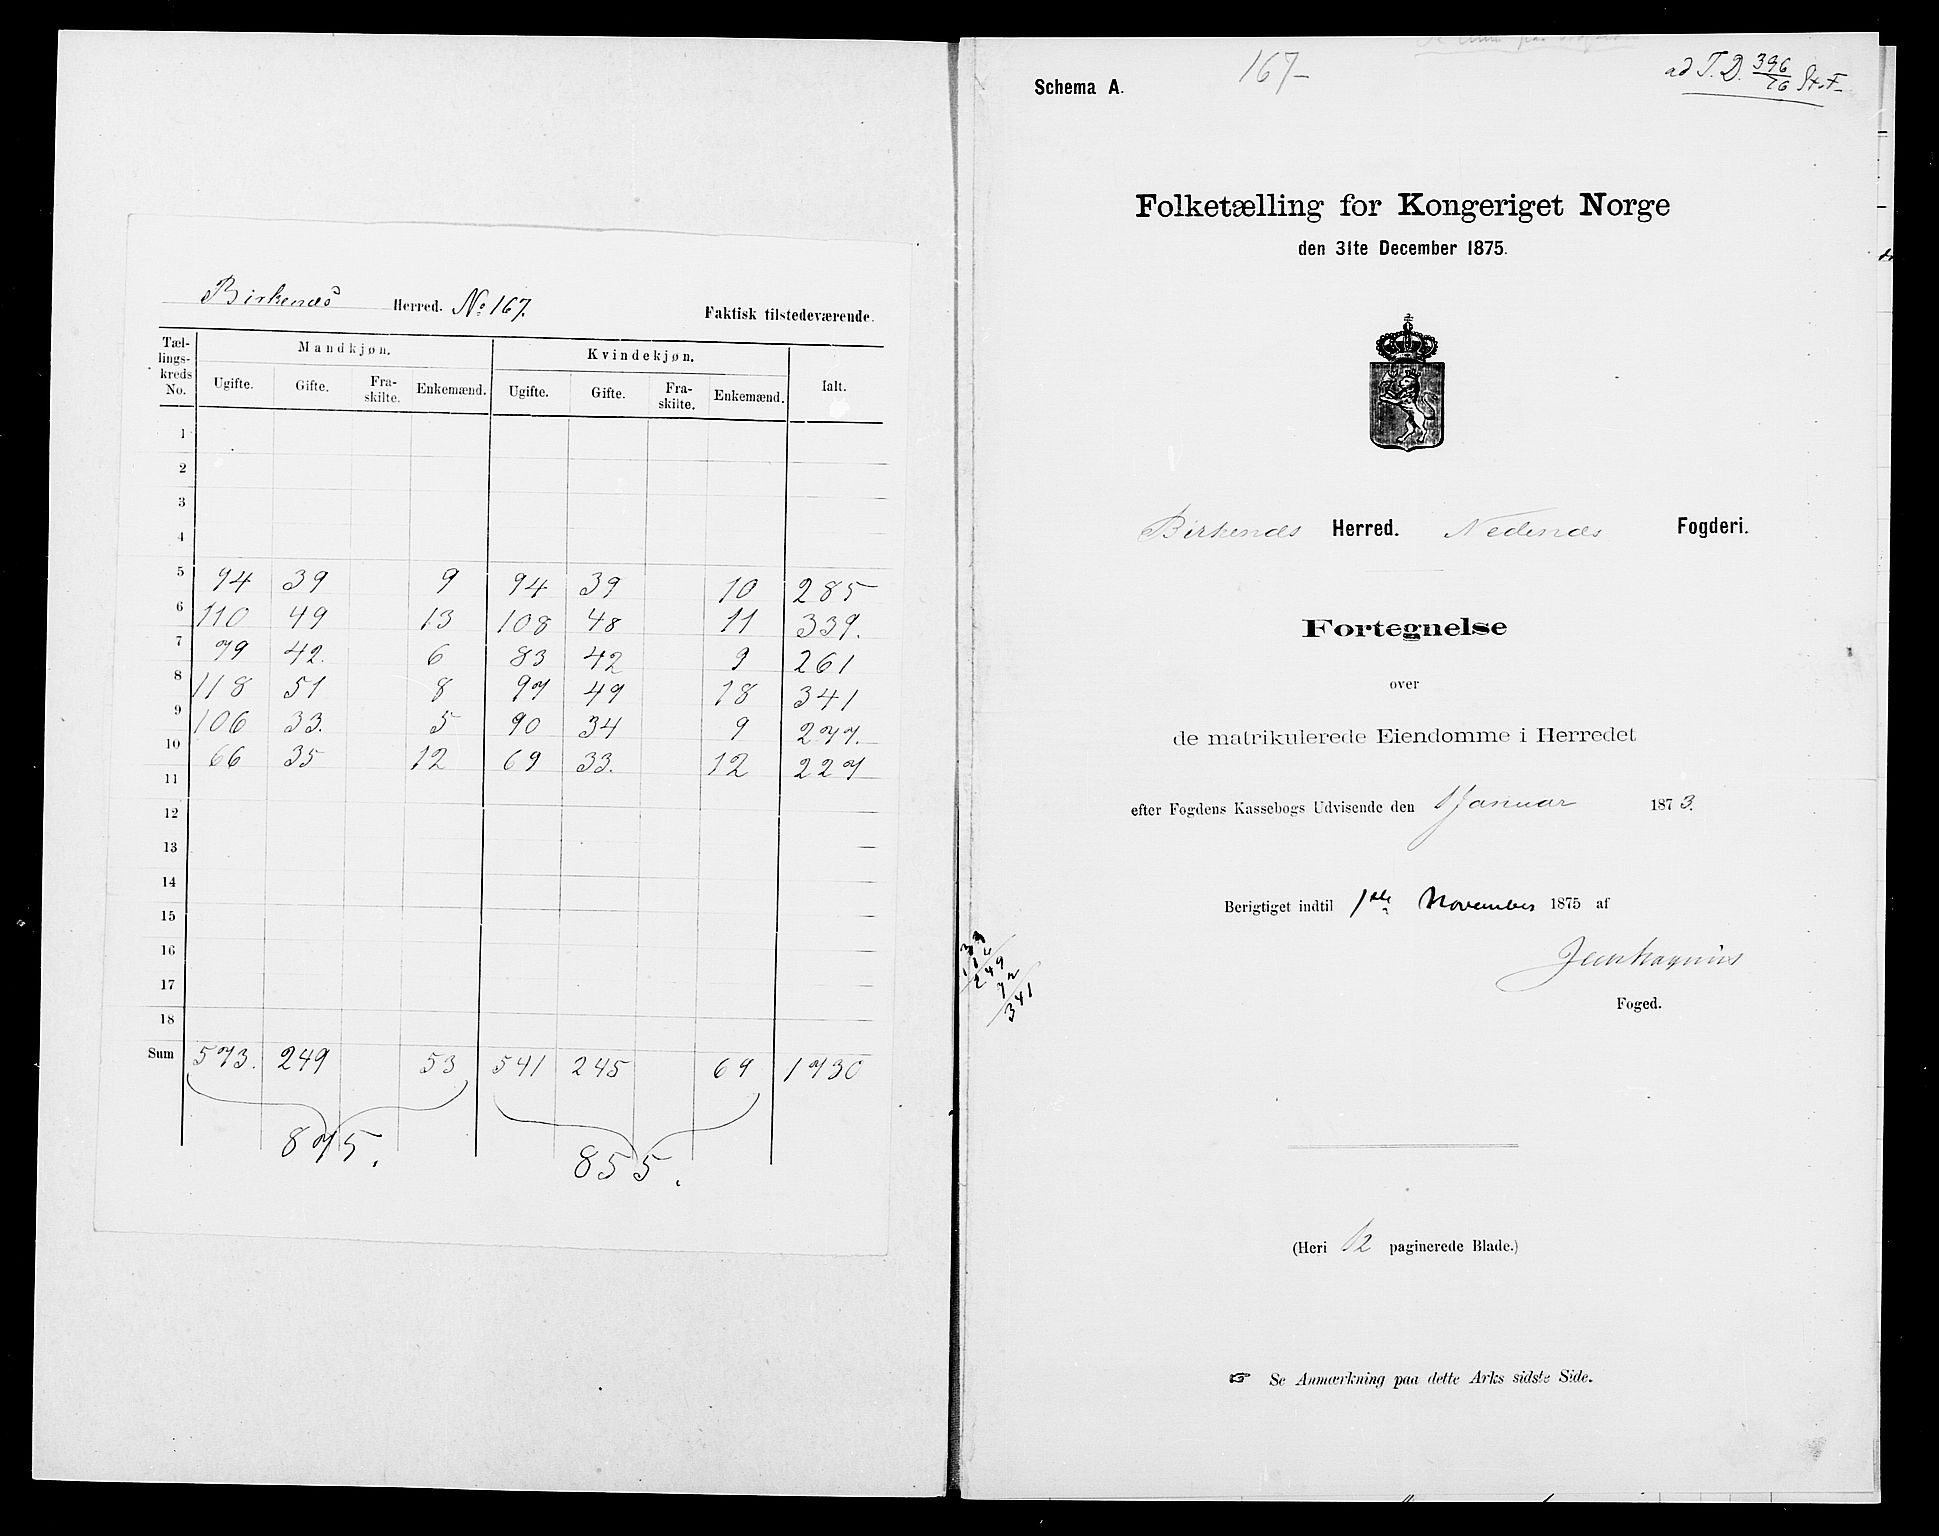 Birkenæs Herred. No. 167. Faktisk tilstedeværende.
Tæl-lings-kreds No. Mandkjøn. Kvindekjøn. Ialt.
Ugifte. Gifte. Fra-skilte. Enkemænd. Ugifte. Gifte. Fra-skilte. Enkemænd.
1
2
3
4
5 94 39 9 94 39 10 285
6 110 49 13 108 48 11 339.
7 79 42. 6 83 42 9 261
8 118 51 8 97 49 18 341
9 106 33. 5 90 34 9 277.
10 66 35 12 69 33. 12 227
11
12
13
14
15
16
17
18
Sum 573. 249 53 541 245 69 1730
875. 855.
167-
ad T.D. 396/76 St. F.
Schema A.
Folketælling for Kongeriget Norge
den 31te December 1875.
Birkenæs Herred. Nedenæs Fogderi.
Fortegnelse
over
de matrikulerede Eiendomme i Herredet
efter Fogdens Kassebogs Udvisende den 1 Januar 1873.
Berigtiget indtil 1ste November 1875 af
Foged.
249
341
(Heri 12 paginerede Blade.)
☞ Se Anmærkning paa dette Arks sidste Side.